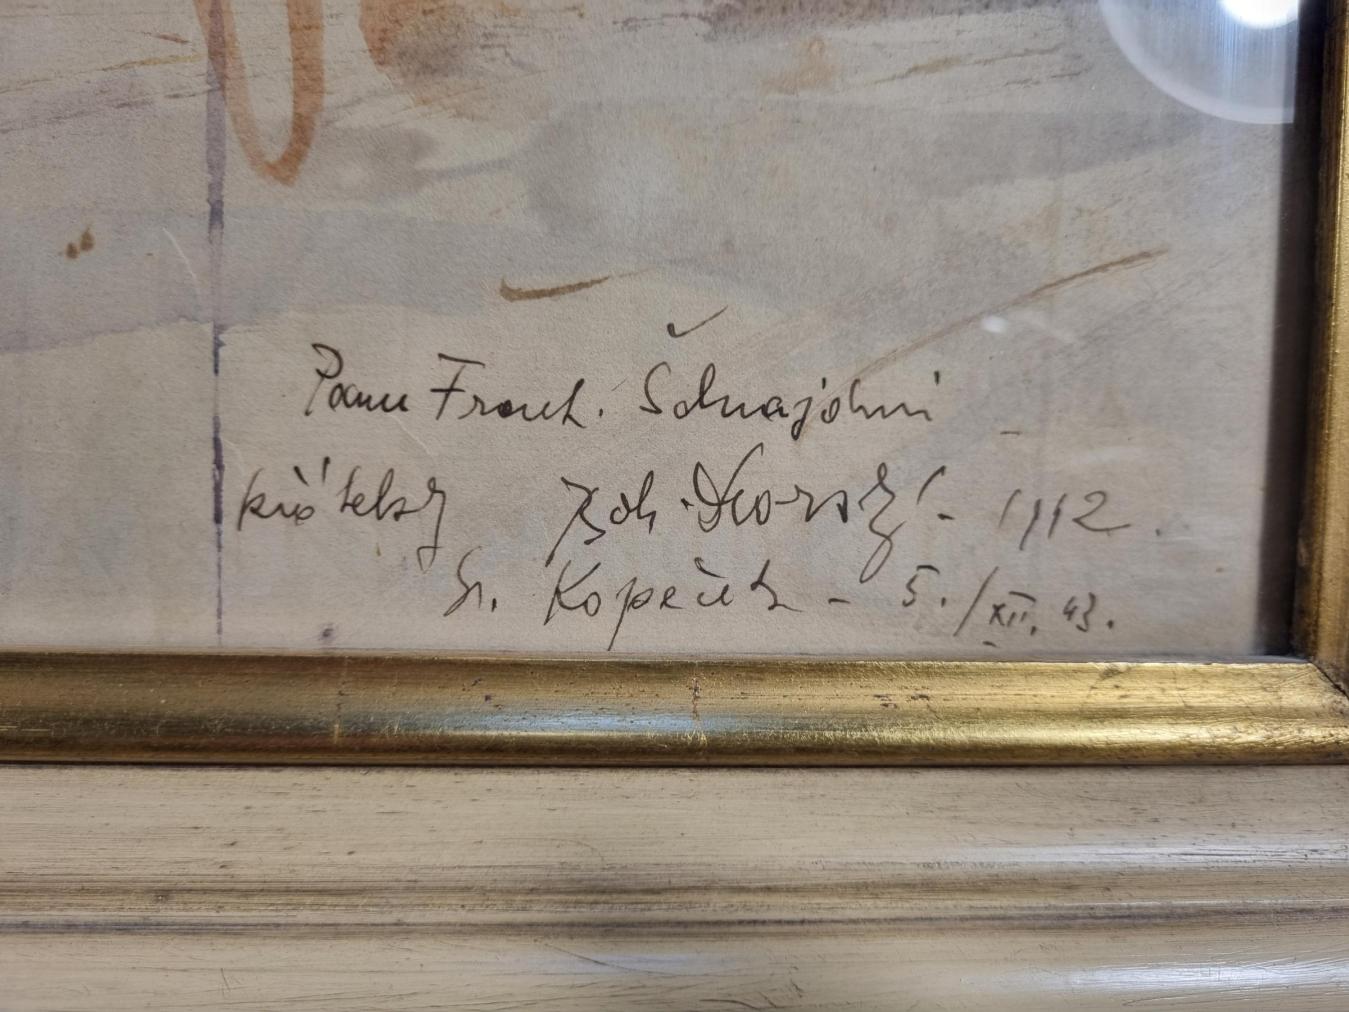 Panu Frant. Šdnajdrovi
přátelsky Boh. Dvorský - 1942.
Sv. Kopeček - 5./XII. 43.